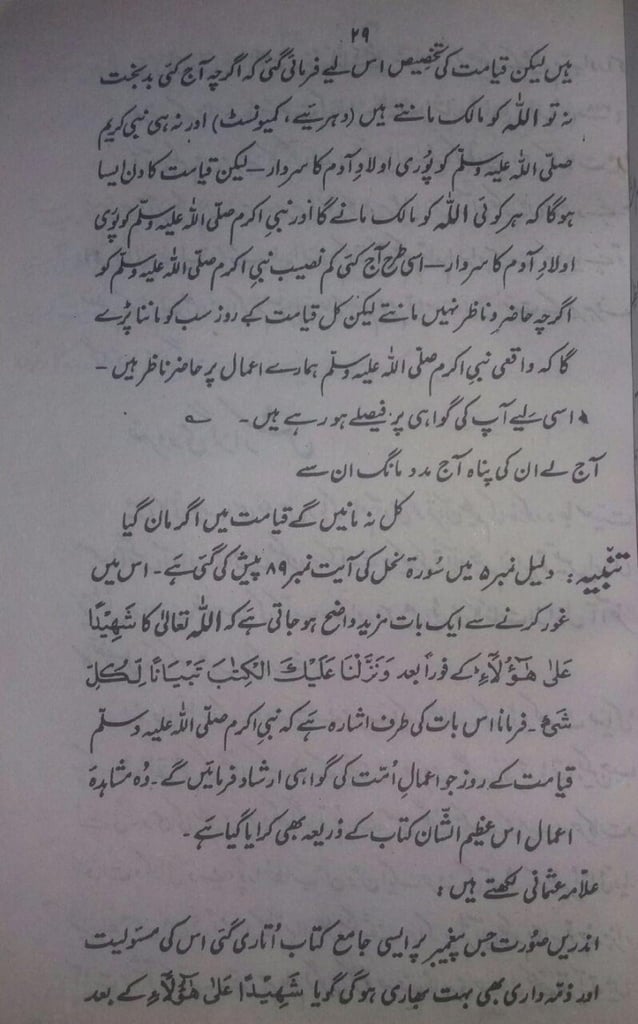 ۲۹
ہیں لیکن قیامت کی تخصیص اس لیے فرمائی گئی کہ اگرچہ آج کئی بدبخت
نہ تو اللہ کو مالک مانتے ہیں (دہریے، کمیونسٹ) اور نہ ہی نبی کریم
صلی اللہ علیہ وسلم کو پوری اولادِ آدم کا سردار — لیکن قیامت کا دن ایسا
ہوگا کہ ہر کوئی اللہ کو مالک مانے گا اور نبی اکرم صلی اللہ علیہ وسلم کو پوری
اولادِ آدم کا سردار — اسی طرح آج کئی کم نصیب نبی اکرم صلی اللہ علیہ وسلم کو
اگرچہ حاضر و ناظر نہیں مانتے لیکن کل قیامت کے روز سب کو ماننا پڑے
گا کہ واقعی نبی اکرم صلی اللہ علیہ وسلم ہمارے اعمال پر حاضر ناظر ہیں -
اسی لیے آپ کی گواہی پر فیصلے ہو رہے ہیں۔ ؎
آج لے ان کی پناہ آج مدد مانگ ان سے
کل نہ مانیں گے قیامت میں اگر مان گیا
تنبیہ: دلیل نمبر ۵ میں سُورۃ نحل کی آیت نمبر ۸۹ پیش کی گئی ہے۔ اس میں
غور کرنے سے ایک بات مزید واضح ہو جاتی ہے کہ اللہ تعالیٰ کا شَهِيْدًا
عَلىٰ هٰٓؤُلَآءِ کے فوراً بعد وَنَزَّلْنَا عَلَيْكَ الْكِتٰبَ تِبْيَانًا لِّكُلِّ
شَيْءٍ۔ فرمانا اس بات کی طرف اشارہ ہے کہ نبی اکرم صلی اللہ علیہ وسلم
قیامت کے روز جو اعمالِ اُمّت کی گواہی ارشاد فرمائیں گے۔ وُہ مشاہدہ
اعمال اس عظیم الشّان کتاب کے ذریعہ بھی کرایا گیا ہے۔
علّامہ عثمانی لکھتے ہیں:
اندریں صُورت جس پیغمبر پر ایسی جامع کتاب اُتاری گئی اس کی مسئولیت
اور ذمّہ داری بھی بہت بھاری ہوگی گویا شَهِيْدًا عَلىٰ هٰٓؤُلَآءِ کے بعد